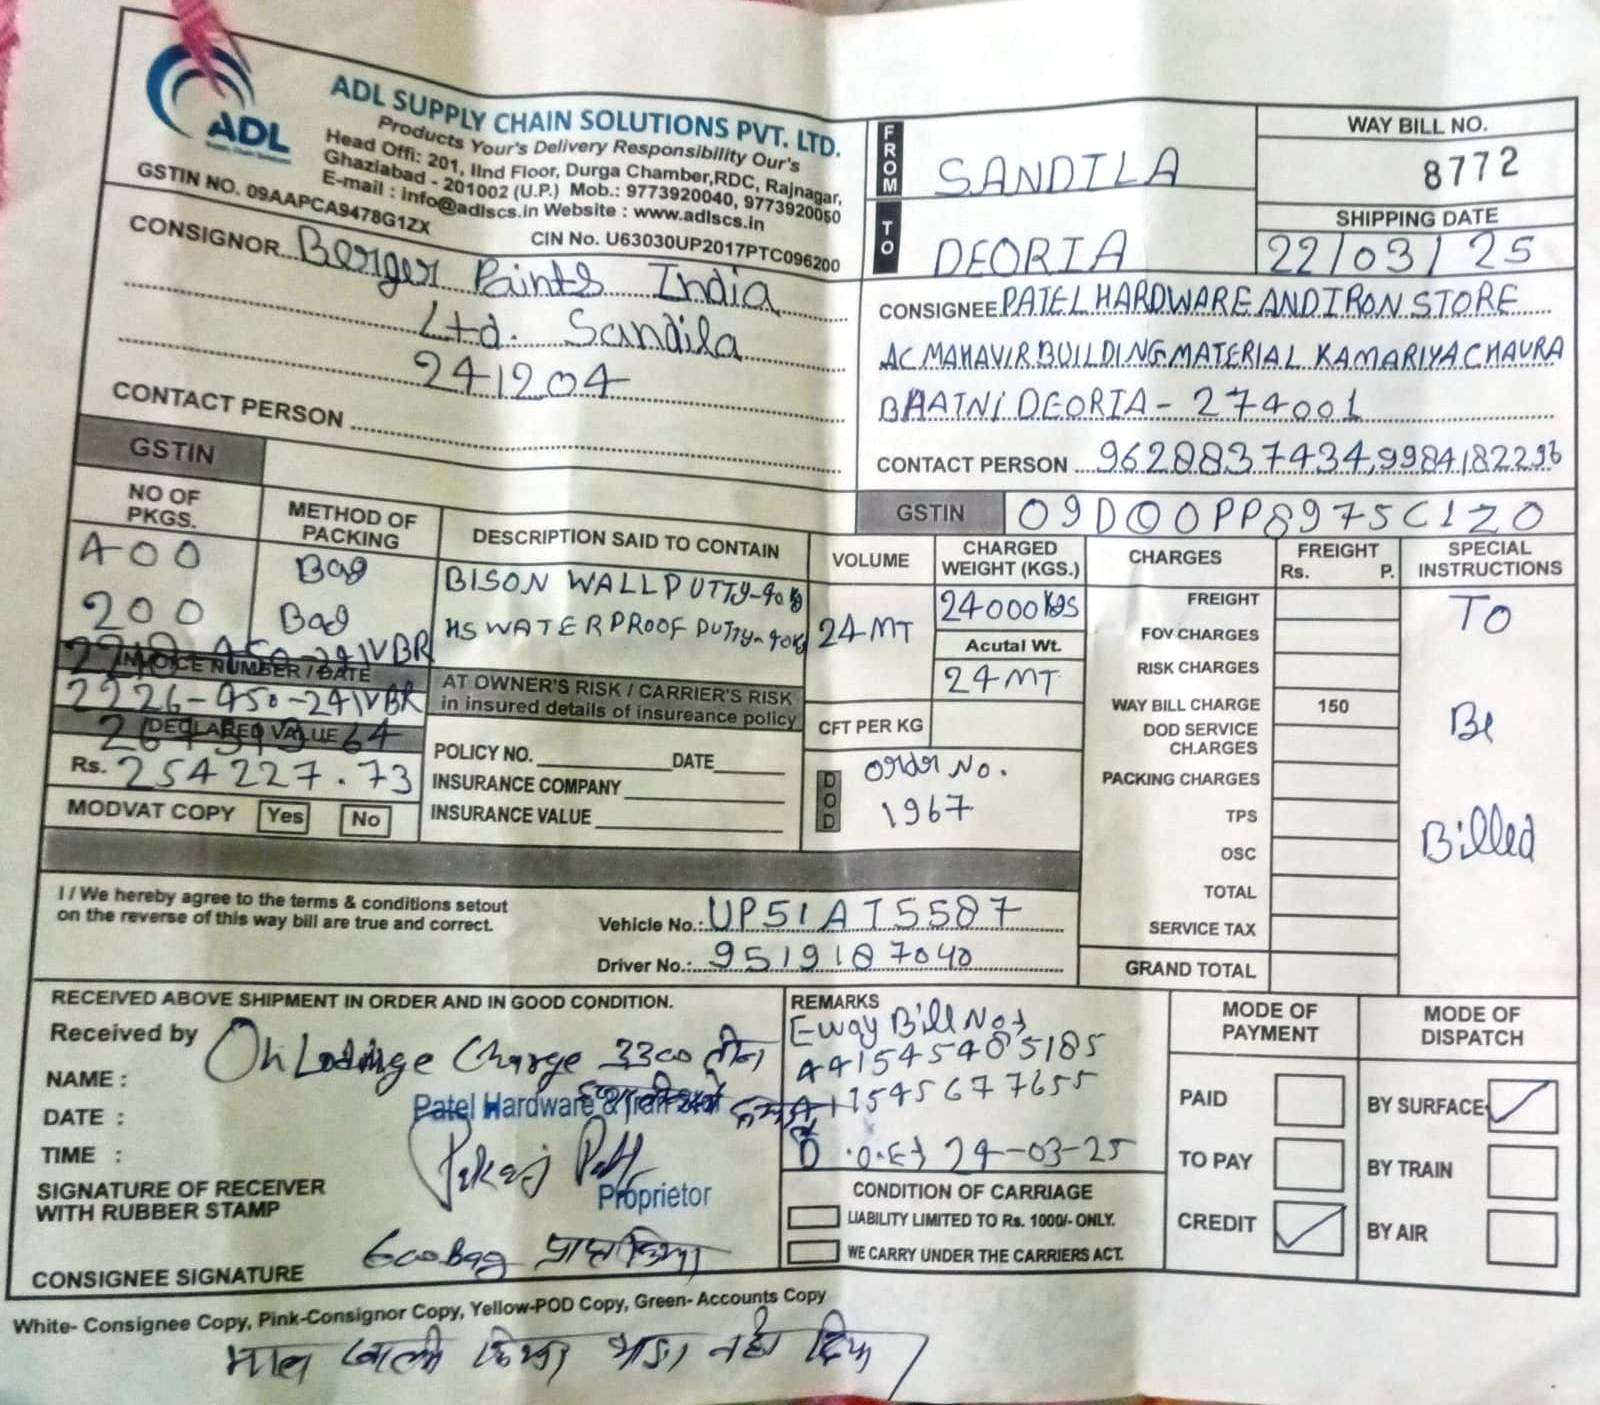 ADL
ADL SUPPLY CHAIN SOLUTIONS PVT. LTD.
Products Your's Delivery Responsibility Our's
Head Offi: 201, IInd Floor, Durga Chamber,RDC, Rajnagar,
Ghaziabad - 201002 (U.P.) Mob.: 9773920040, 9773920050
E-mail : info@adlscs.in Website : www.adlscs.in
GSTIN NO. 09AAPCA9478G1ZX
CIN No. U63030UP2017PTC096200
FROM SANDILA
TO DEORIA
WAY BILL NO.
8772
SHIPPING DATE
22/03/25
CONSIGNOR Berger Paints India
Ltd. Sandila
241204
CONTACT PERSON
GSTIN
CONSIGNEE PATEL HARDWARE AND IRON STORE
AC MAHAVIR BUILDING MATERIAL KAMARIYA CHAURA
BHATNI DEORIA - 274001
CONTACT PERSON 9628837434, 9984182296
GSTIN 09DOOPP8975C1ZO
NO OF PKGS.
METHOD OF PACKING
DESCRIPTION SAID TO CONTAIN
VOLUME
CHARGED WEIGHT (KGS.)
CHARGES
FREIGHT
Rs. P.
SPECIAL INSTRUCTIONS
400 Bag BISON WALL PUTTY-40kg
200 Bag HS WATERPROOF PUTTY-40kg
24 MT
24000 KGS
Acutal Wt.
24 MT
INVOICE NUMBER / DATE
2226-450-241VBR
DECLARED VALUE
Rs. 254227.73
MODVAT COPY Yes No
AT OWNER'S RISK / CARRIER'S RISK
in insured details of insureance policy
POLICY NO. DATE
INSURANCE COMPANY
INSURANCE VALUE
CFT PER KG
DOD
Order No.
1967
FREIGHT
FOV CHARGES
RISK CHARGES
WAY BILL CHARGE 150
DOD SERVICE CHARGES
PACKING CHARGES
TPS
OSC
TOTAL
SERVICE TAX
GRAND TOTAL
To
Be
Billed
I / We hereby agree to the terms & conditions setout
on the reverse of this way bill are true and correct.
Vehicle No.: UP51AT5587
Driver No.: 9519187040
RECEIVED ABOVE SHIPMENT IN ORDER AND IN GOOD CONDITION.
Received by
Charge 3300
NAME :
DATE :
TIME :
Patel Hardware & Iron Store
Proprietor
SIGNATURE OF RECEIVER
WITH RUBBER STAMP
600 Bag
CONSIGNEE SIGNATURE
REMARKS
E-way Bill No
441545485185
1545677655
24-03-25
CONDITION OF CARRIAGE
LIABILITY LIMITED TO Rs. 1000/- ONLY.
WE CARRY UNDER THE CARRIERS ACT.
MODE OF PAYMENT
PAID
TO PAY
CREDIT
MODE OF DISPATCH
BY SURFACE
BY TRAIN
BY AIR
White- Consignee Copy, Pink-Consignor Copy, Yellow-POD Copy, Green- Accounts Copy
माल खाली किया भाड़ा नहीं दिया